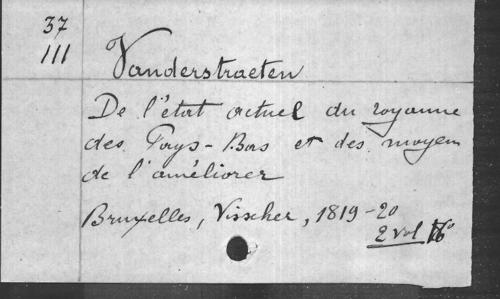 37
III
Vanderstraeten
De l'état actuel du royaume
des Pays-Bas et des moyen
de l'améliorer
Bruxelles, Visscher, 1819-20
2 vol